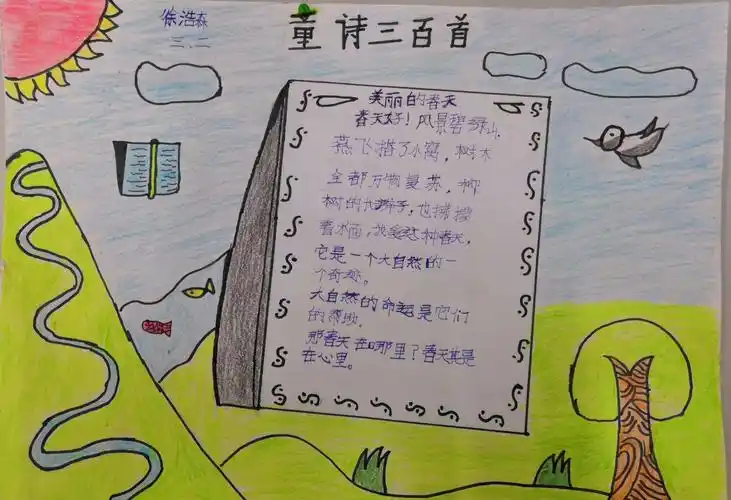 徐浩森
三.二
童诗三百首
美丽的春天
春天好!风景碧绿山.
燕飞搭了小窝,树木
全都万物复苏,柳
树的长辫子,也拂
春水面,我爱这种春天,
它是一个大自然的一
个奇迹。
大自然的命运是它们
的帮助.
那春天在哪里?春天其是
在心里。